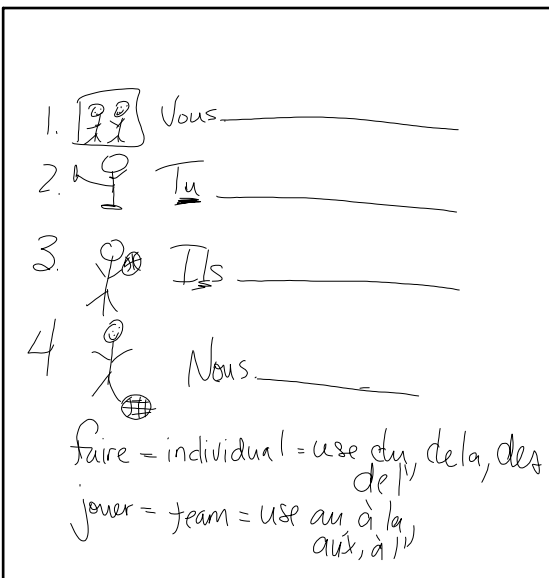 1. Vous
2. Tu
3. Ils
4 Nous
faire = individual = use du, de la, des
de l'
jouer = team = use au à la,
aux, à l'